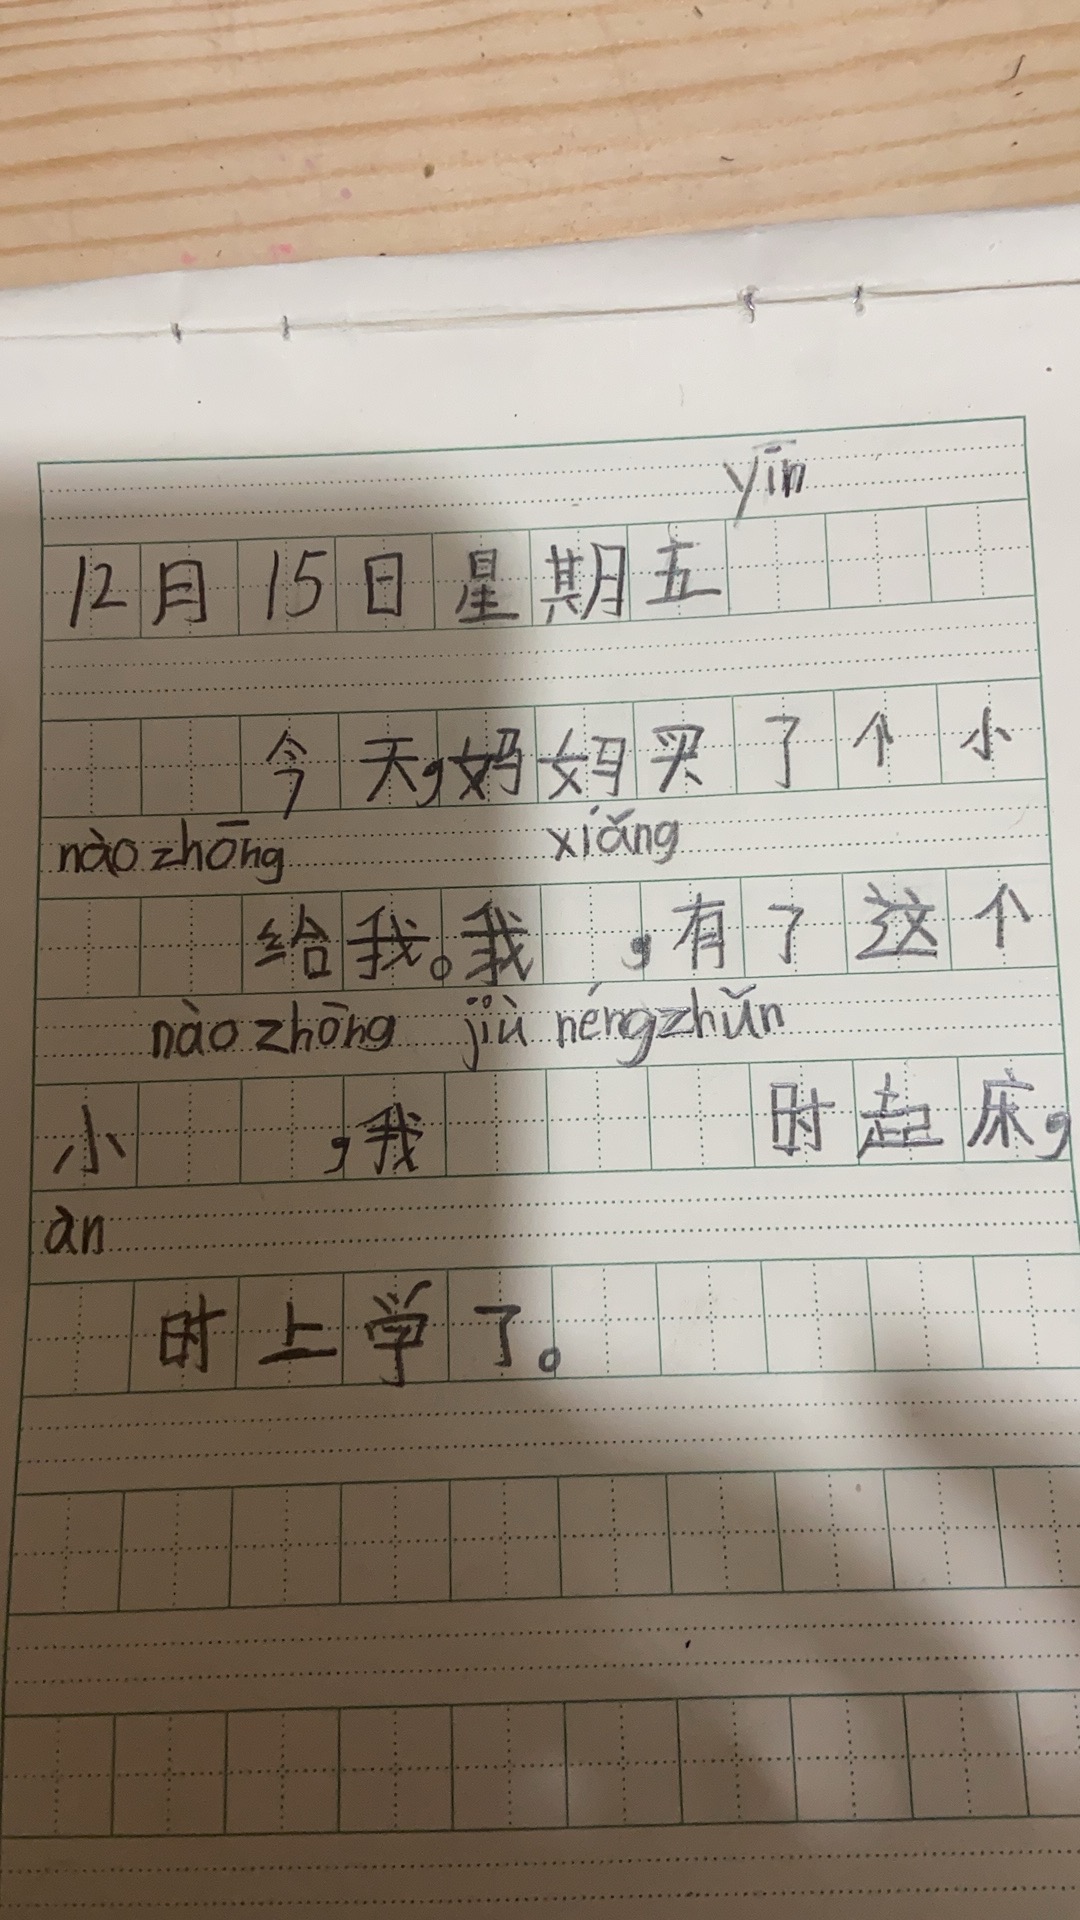 yīn
12月15日星期五
今天,妈妈买了个小
nào zhōng xiǎng
给我。我,有了这个
nào zhōng jiù néng zhǔn
小,我时起床,
àn
时上学了。